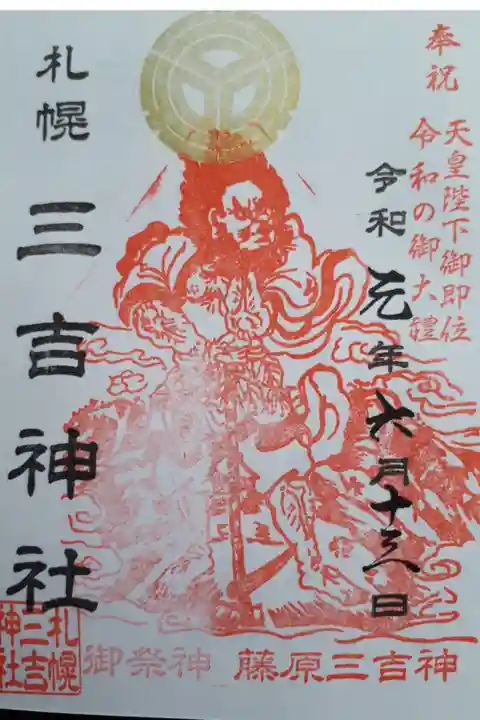 奉祝
天皇陛下御即位
令和の御大禮
令和元年六月十三日
札幌三吉神社
札幌
三吉
神社
御祭神 藤原三吉神